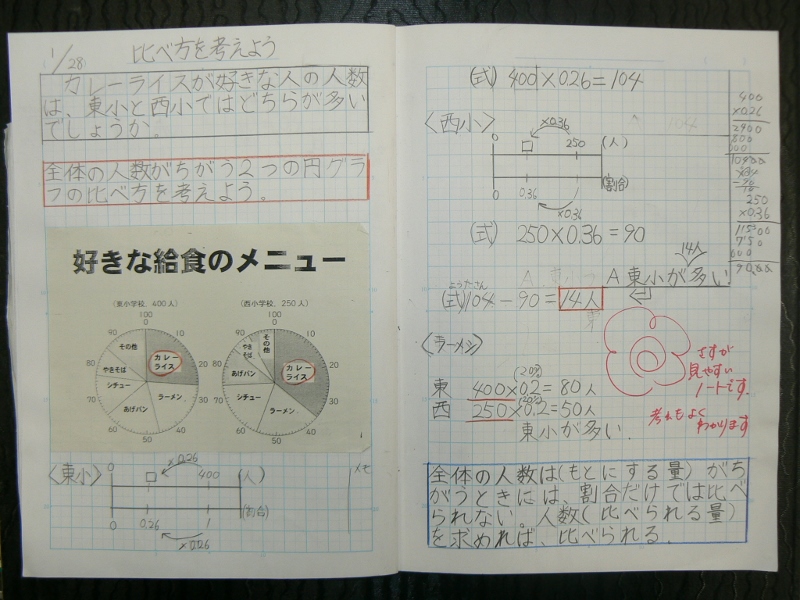 1/28
比べ方を考えよう
カレーライスが好きな人の人数
は、東小と西小ではどちらが多い
でしょうか。
全体の人数がちがう2つの円グラ
フの比べ方を考えよう。
好きな給食のメニュー
(東小学校, 400人)
100
0
10
20
30
40
50
60
70
80
90
カレー
ライス
ラーメン
あげパン
シチュー
やきそば
その他
(西小学校, 250人)
100
0
10
20
30
40
50
60
70
80
90
カレー
ライス
ラーメン
シチュー
あげパン
やき
そば
その他
〈東小〉
×0.26
0 □ 400 (人)
0 0.26 1 (割合)
×0.26
メモ
(式) 400×0.26=104
〈西小〉
×0.36
0 □ 250 (人)
0 0.36 1 (割合)
×0.36
(式) 250×0.36=90
14人
A 東小が多い
(式)104-90=14人
〈ラーメン〉
(20%)
東 400×0.2=80人
(20%)
西 250×0.2=50人
東小が多い.
さすが
見やすい
ノートです。
考えもよく
わかります
全体の人数は(もとにする量)がち
がうときには、割合だけでは比べ
られない。人数(比べられる量)
を求めれば、比べられる.
400
×0.26
2400
800
250
×0.36